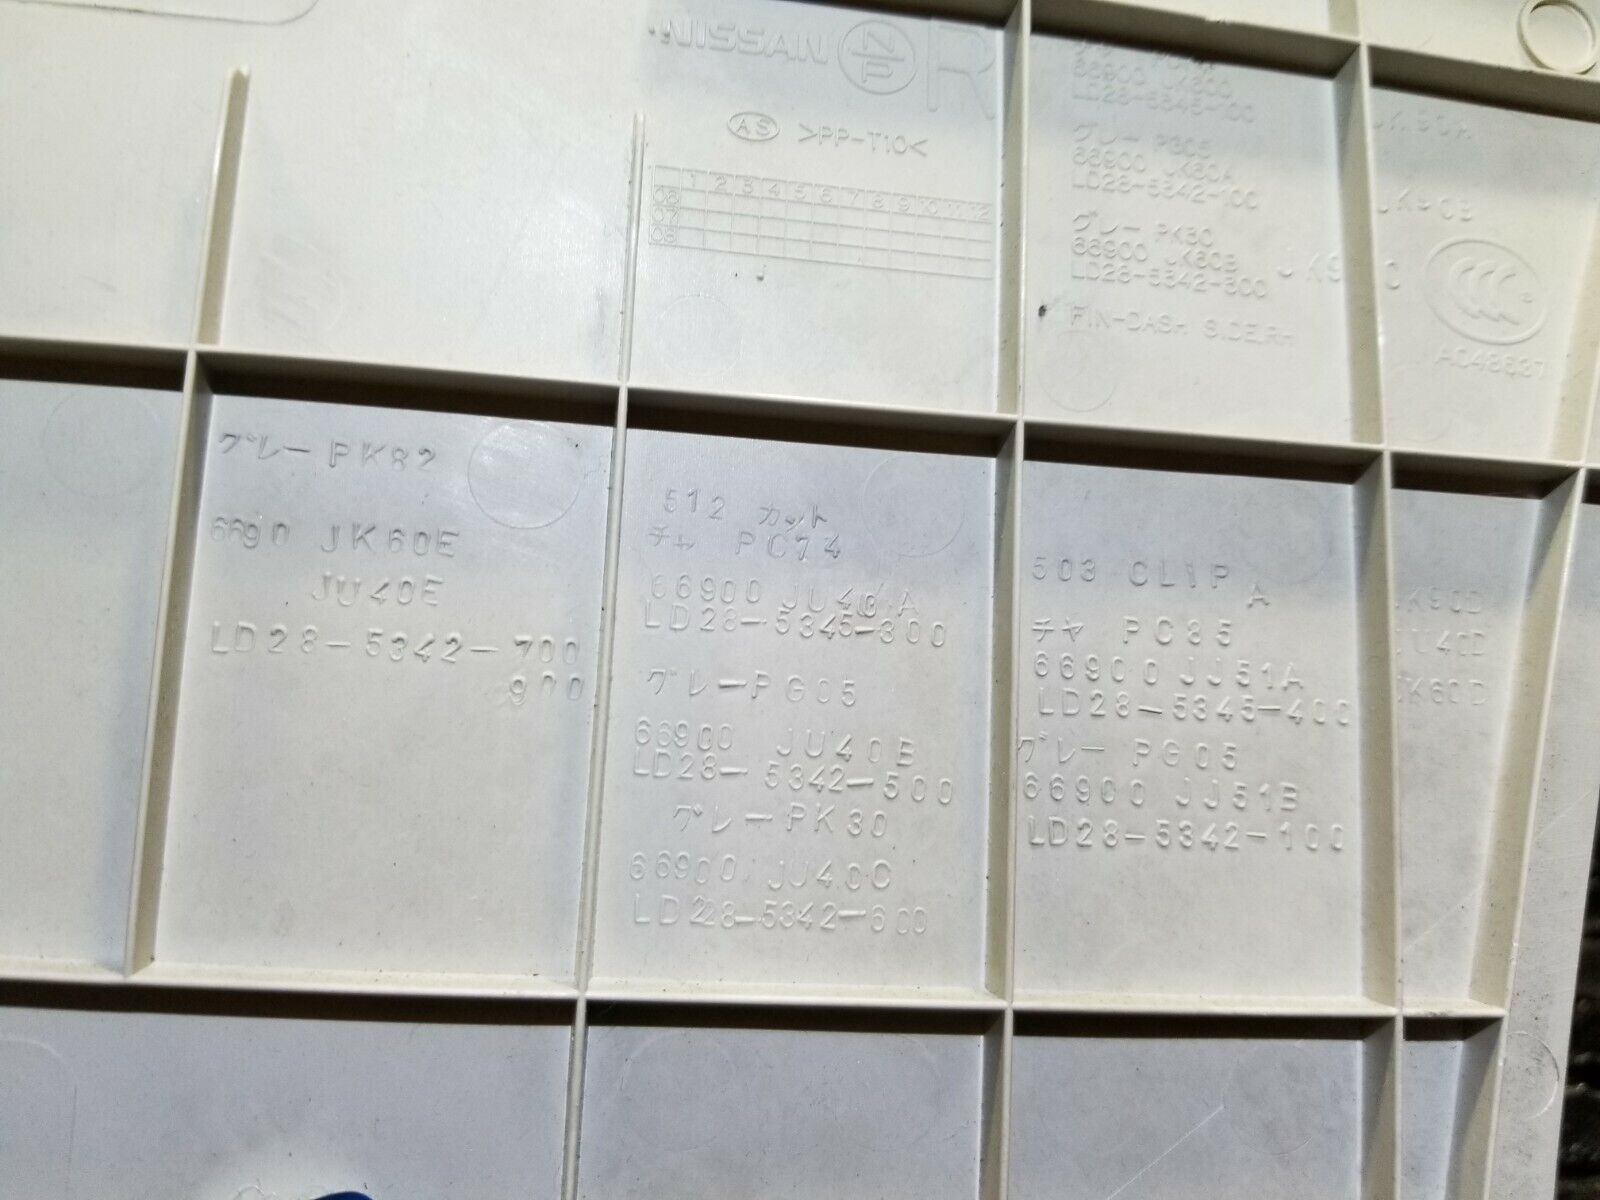 NISSAN NP R
AS >PP-T10<
1 2 3 4 5 6 7 8 9 10 11 12
06
07
08
66900 JK600
LD28-5345-100
グレー PG05
66900 JK60A
LD28-5342-100
グレー PK30
66900 JK60B
LD28-5342-300
FIN-DASH SIDE,RH
JK90A
JK90B
JK90C
CCC
A048627
グレーPK82
6690 JK60E
JU40E
LD28-5342-700
900
512 カット
チャ PC74
66900 JU40A
LD28-5345-300
グレーPG05
66900 JU40B
LD28-5342-500
グレーPK30
66900 JU40C
LD228-5342-600
503 CLIP A
チャ PC85
66900 JJ51A
LD28-5345-400
グレー PG05
66900 JJ51B
LD28-5342-100
JK90D
JU40D
JK60D